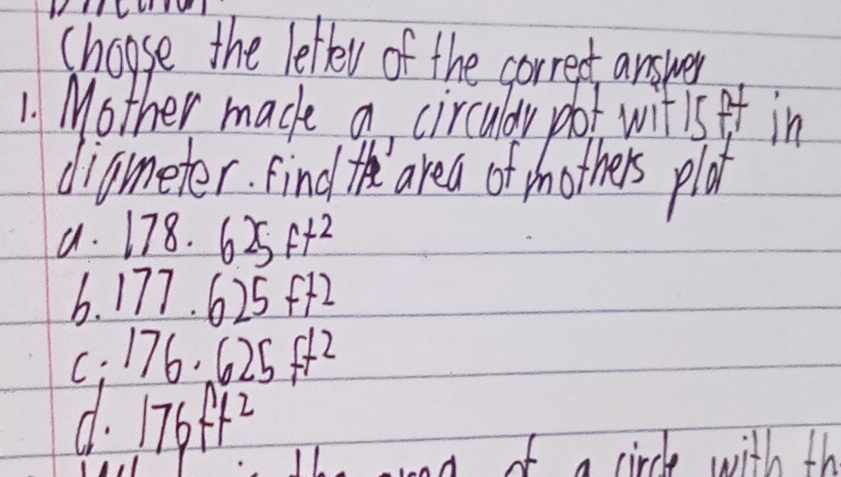 Choose the letter of the correct answer
1. Mother made a circular plot wit 15 ft in
diameter. Find the area of mothers plot
a. 178. 625 ft²
b. 177.625 ft2
c. 176.625 ft²
d. 176 ft²
the area of a circle with th